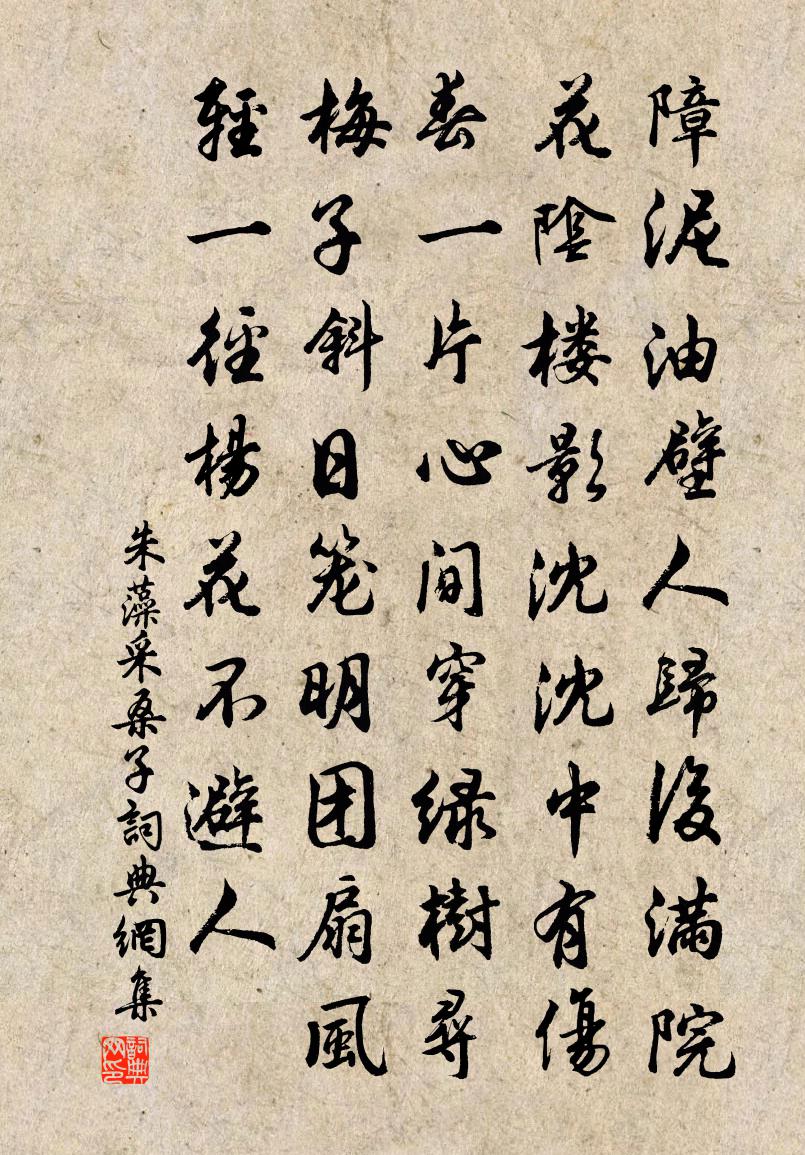 障泥油壁人歸後滿院
花陰楼影沈沈中有傷
春一片心间穿绿樹尋
梅子斜日笼明团扇風
輕一徑楊花不避人
朱藻采桑子詞典網集
詞典网印